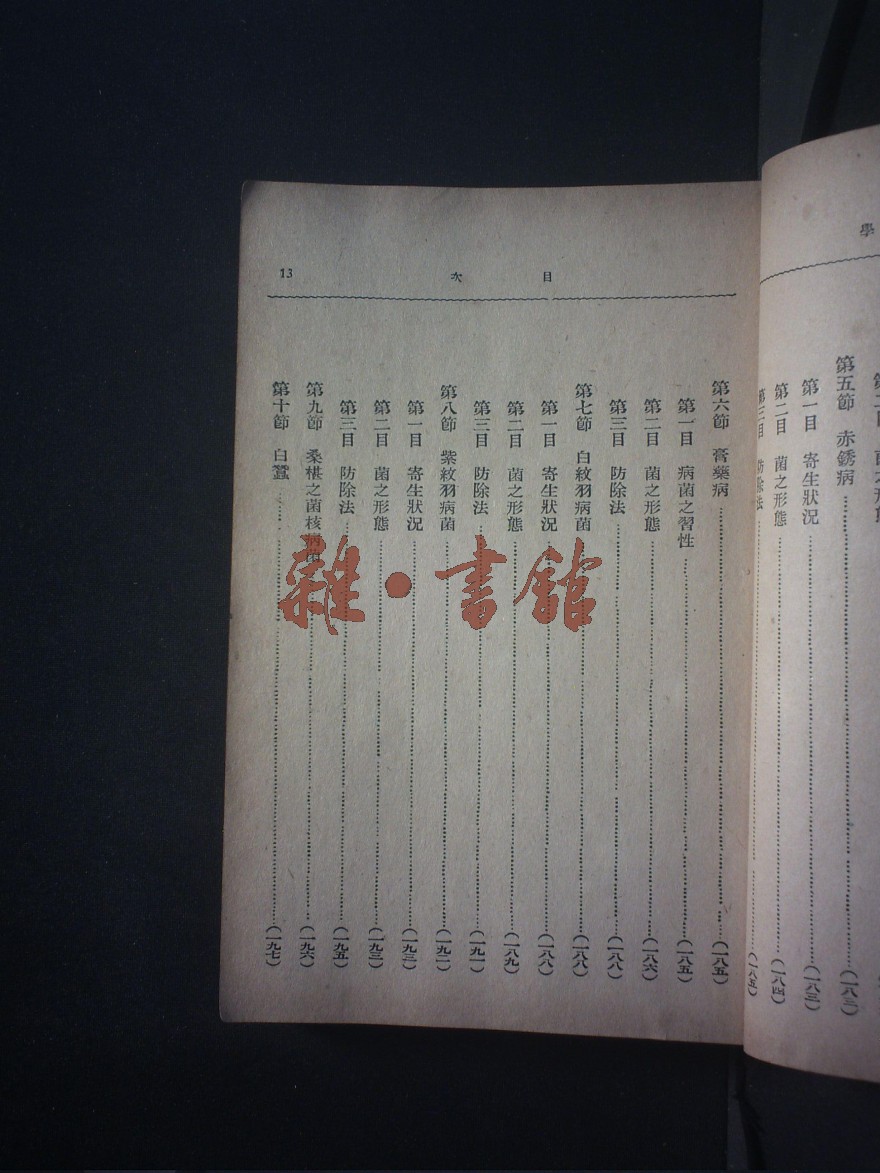 學
第五節　赤銹病……(一八三)
第一目　寄生狀況……(一八三)
第二目　菌之形態……(一八四)
第三目　防除法……(一八五)
13　次　目
第六節　膏藥病……(一八五)
第一目　病菌之習性……(一八五)
第二目　菌之形態……(一八六)
第三目　防除法……(一八八)
第七節　白紋羽病菌……(一八八)
第一目　寄生狀況……(一八八)
第二目　菌之形態……(一八九)
第三目　防除法……(一九一)
第八節　紫紋羽病菌……(一九二)
第一目　寄生狀況……(一九三)
第二目　菌之形態……(一九三)
第三目　防除法……(一九五)
第九節　桑椹之菌核病菌……(一九六)
第十節　白蠶……(一九七)
雜·書館